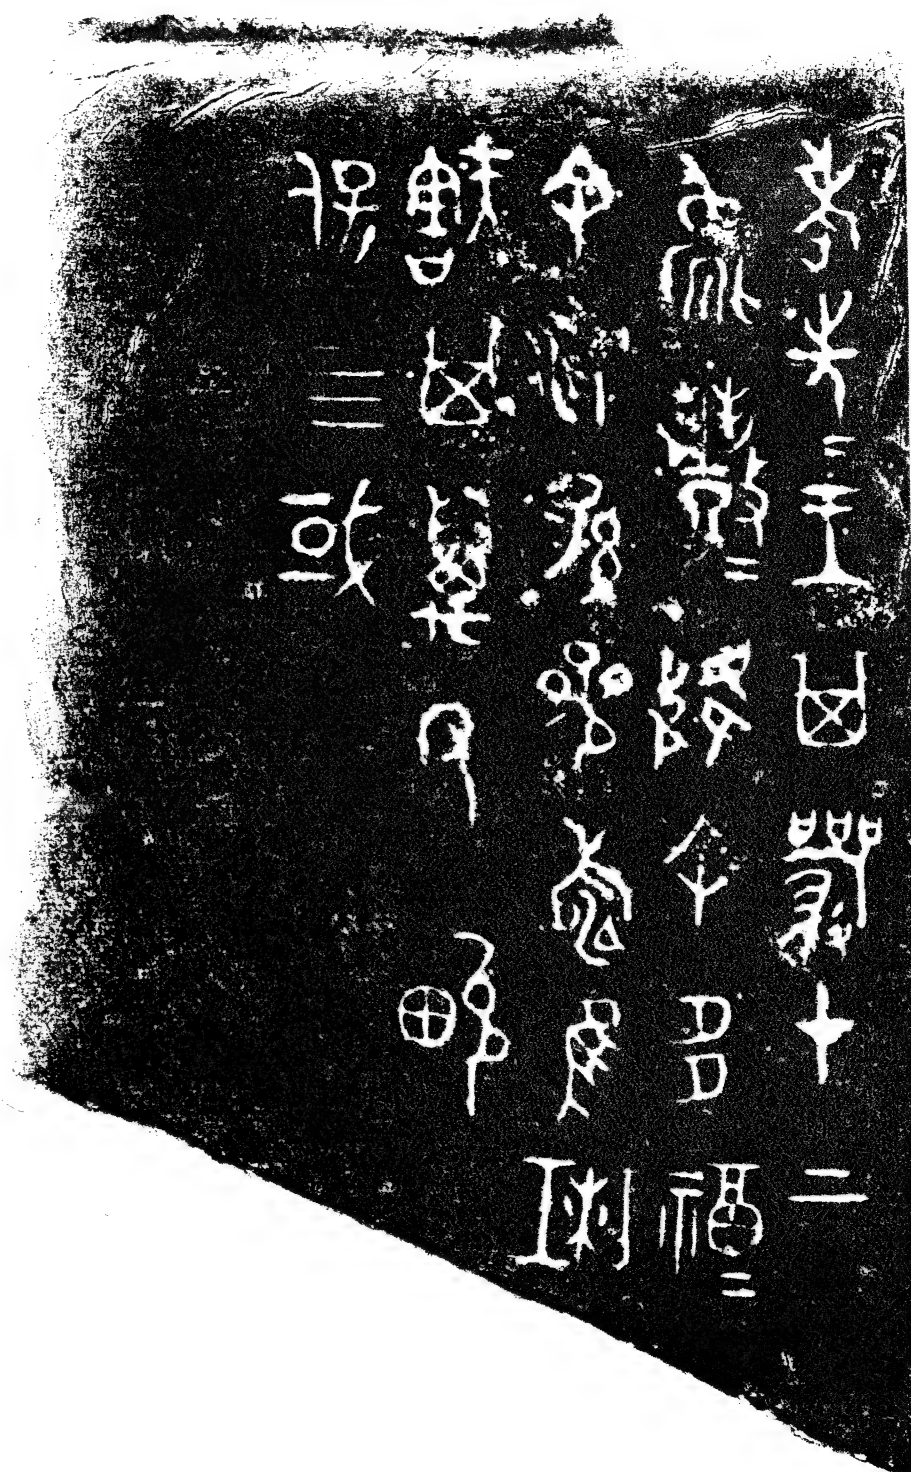 考先=王其嚴才上
㲋數=降余多福=
余順孫參壽唯琍
㝬其萬年畯
保三或